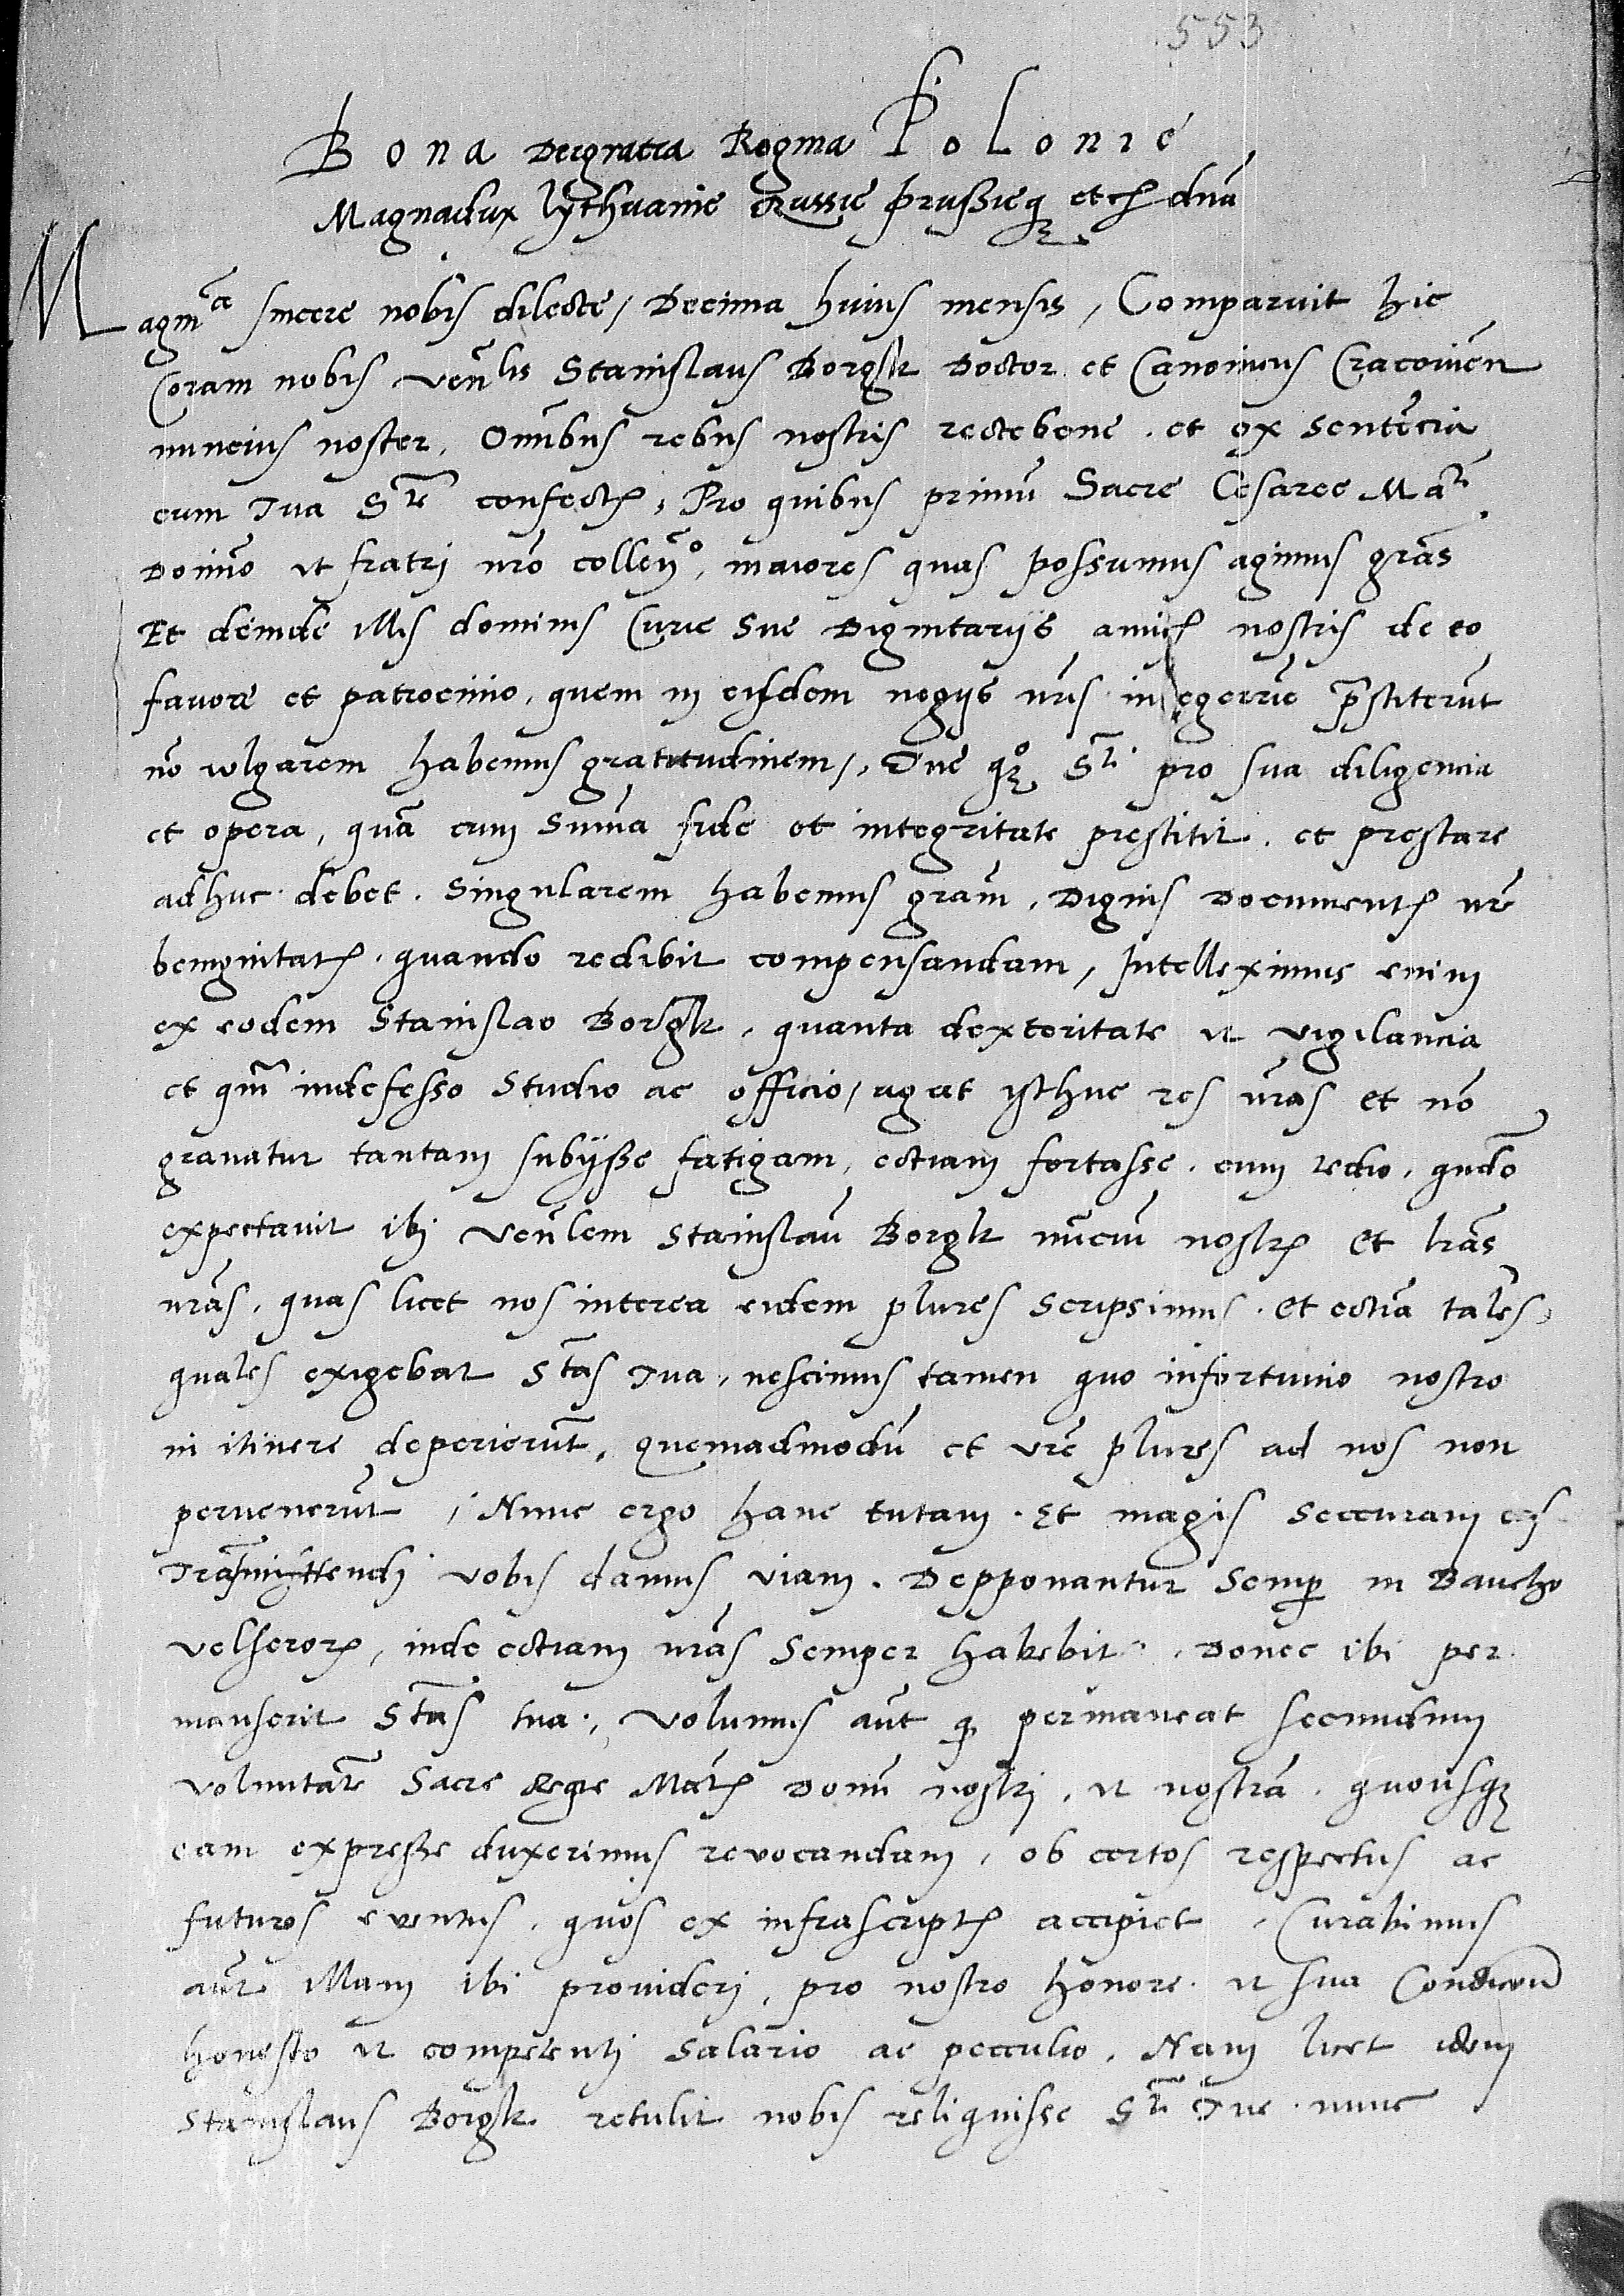 553
Bona Dei gratia Regina Polonie
Magnadux lythuanie Russie prussieq etc dnã
Magnce sincere nobis dilecte, Decima huius mensis, Comparuit hic
Coram nobis venlis Stanislaus Borgk Doctor et Canonicus Cracovien
nuncius noster, Omibus rebus nostris rectebene et ex sentencia
cum Tua Ste confectis, Pro quibus primu Sacre Cesaree Mati
Domino et fratri nro collenmo, maiores quas possumus agimus gras
Et deinde illis dominis Curie Sue Dignitariis amicis nostris de eo
favore et patrocinio, quem in eisdem negys nris integerrie prstiterut
no wlgarem habemus gratitudinem, Tue qz Sti pro sua diligencia
et opera, qua cum Suma fide et integritate prestitit et prestare
adhuc debet Singularem habemus gram, Dignis Documentis nre
benignitatis quando redibit compensandam, Intelleximus enim
ex eodem Stanislao Borgk, quanta dexteritate et vigilancia
et qm indefesso Studio ac officio, agat isthuc res nras et no
gravatur tantam subiisse fatigam, eciam fortasse cum tedio, qudo
expectavit ibi venlem Stanislau Borgk nunciu nostrum et lras
nras, quas licet nos interea eidem plures Scripsimus et eciam tales,
quales exigebat Stas Tua, nescimus tamen quo infortunio nostro
in itinere deperierut, quemadmodu et vre plures ad nos non
pervenerut, Nunc ergo hanc tutam Et magis Seccuram eas
Trasmittendi vobis damus viam. Depponantur Semp in Bancho
velserorum, inde eciam nras Semper habebit, Donec ibi per
manserit Stas tua, Volumus aut q permaneat secundum
voluntate Sacre Regie Matis Domi nostri, et nostra quousqz
eam expresse duxerimus revocandam, ob certos respectus ac
futuros eventus, quos ex infrascriptis accipiet, Curabimus
aute Illam ibi provideri, pro nostro honore et sua Condicione
honesto et competenti Salario ac pecculio. Nam licet idem
Stanislaus Borgk retulit nobis reliquisse Sti Tue nunc